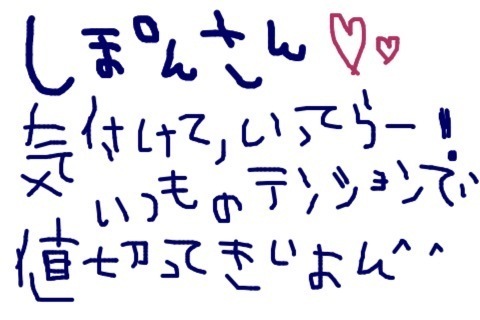 しぽんさん♡♡
気付けて,いってらー!!
いつものテンションで
値切ってきいよん^^